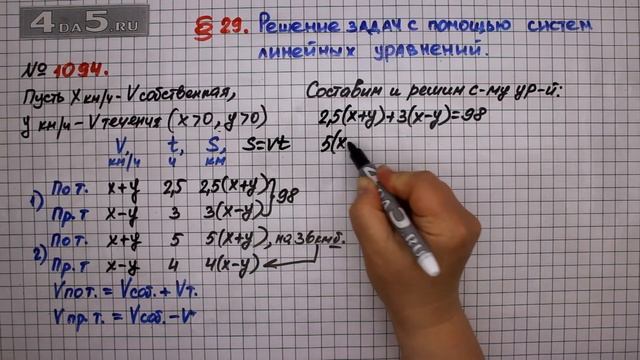 4DA5.RU
§ 29. Решение задач с помощью систем
линейных уравнений.
№ 1094.
Пусть x км/ч - V собственная,
y км/ч - V течения (x>0, y>0)
V, t, S, S=Vt
км/ч ч км
1) По т. x+y 2,5 2,5(x+y)
Пр. т x-y 3 3(x-y) 98
2) По т. x+y 5 5(x+y), на 36 км б.
Пр. т x-y 4 4(x-y)
V по т. = V соб. + V т.
V пр. т. = V соб. - V
Составим и решим с-му ур-й:
2,5(x+y)+3(x-y)=98
5(x